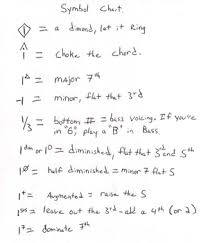 Symbol Chart.
◇1 = a dimond, let it Ring
^1 = Choke the chord.
1△ = major 7th
-1 = minor, flat that 3rd
1/3 = bottom # = bass voicing. If you're
in "G" play a "B" in Bass.
1dim or 1° = diminished, flat that 3rd and 5th
1ø = half diminished = minor 7 flat 5
1+ = Augmented = raise the 5
1sus = leave out the 3rd - add a 4th (or 2)
17 = dominate 7th